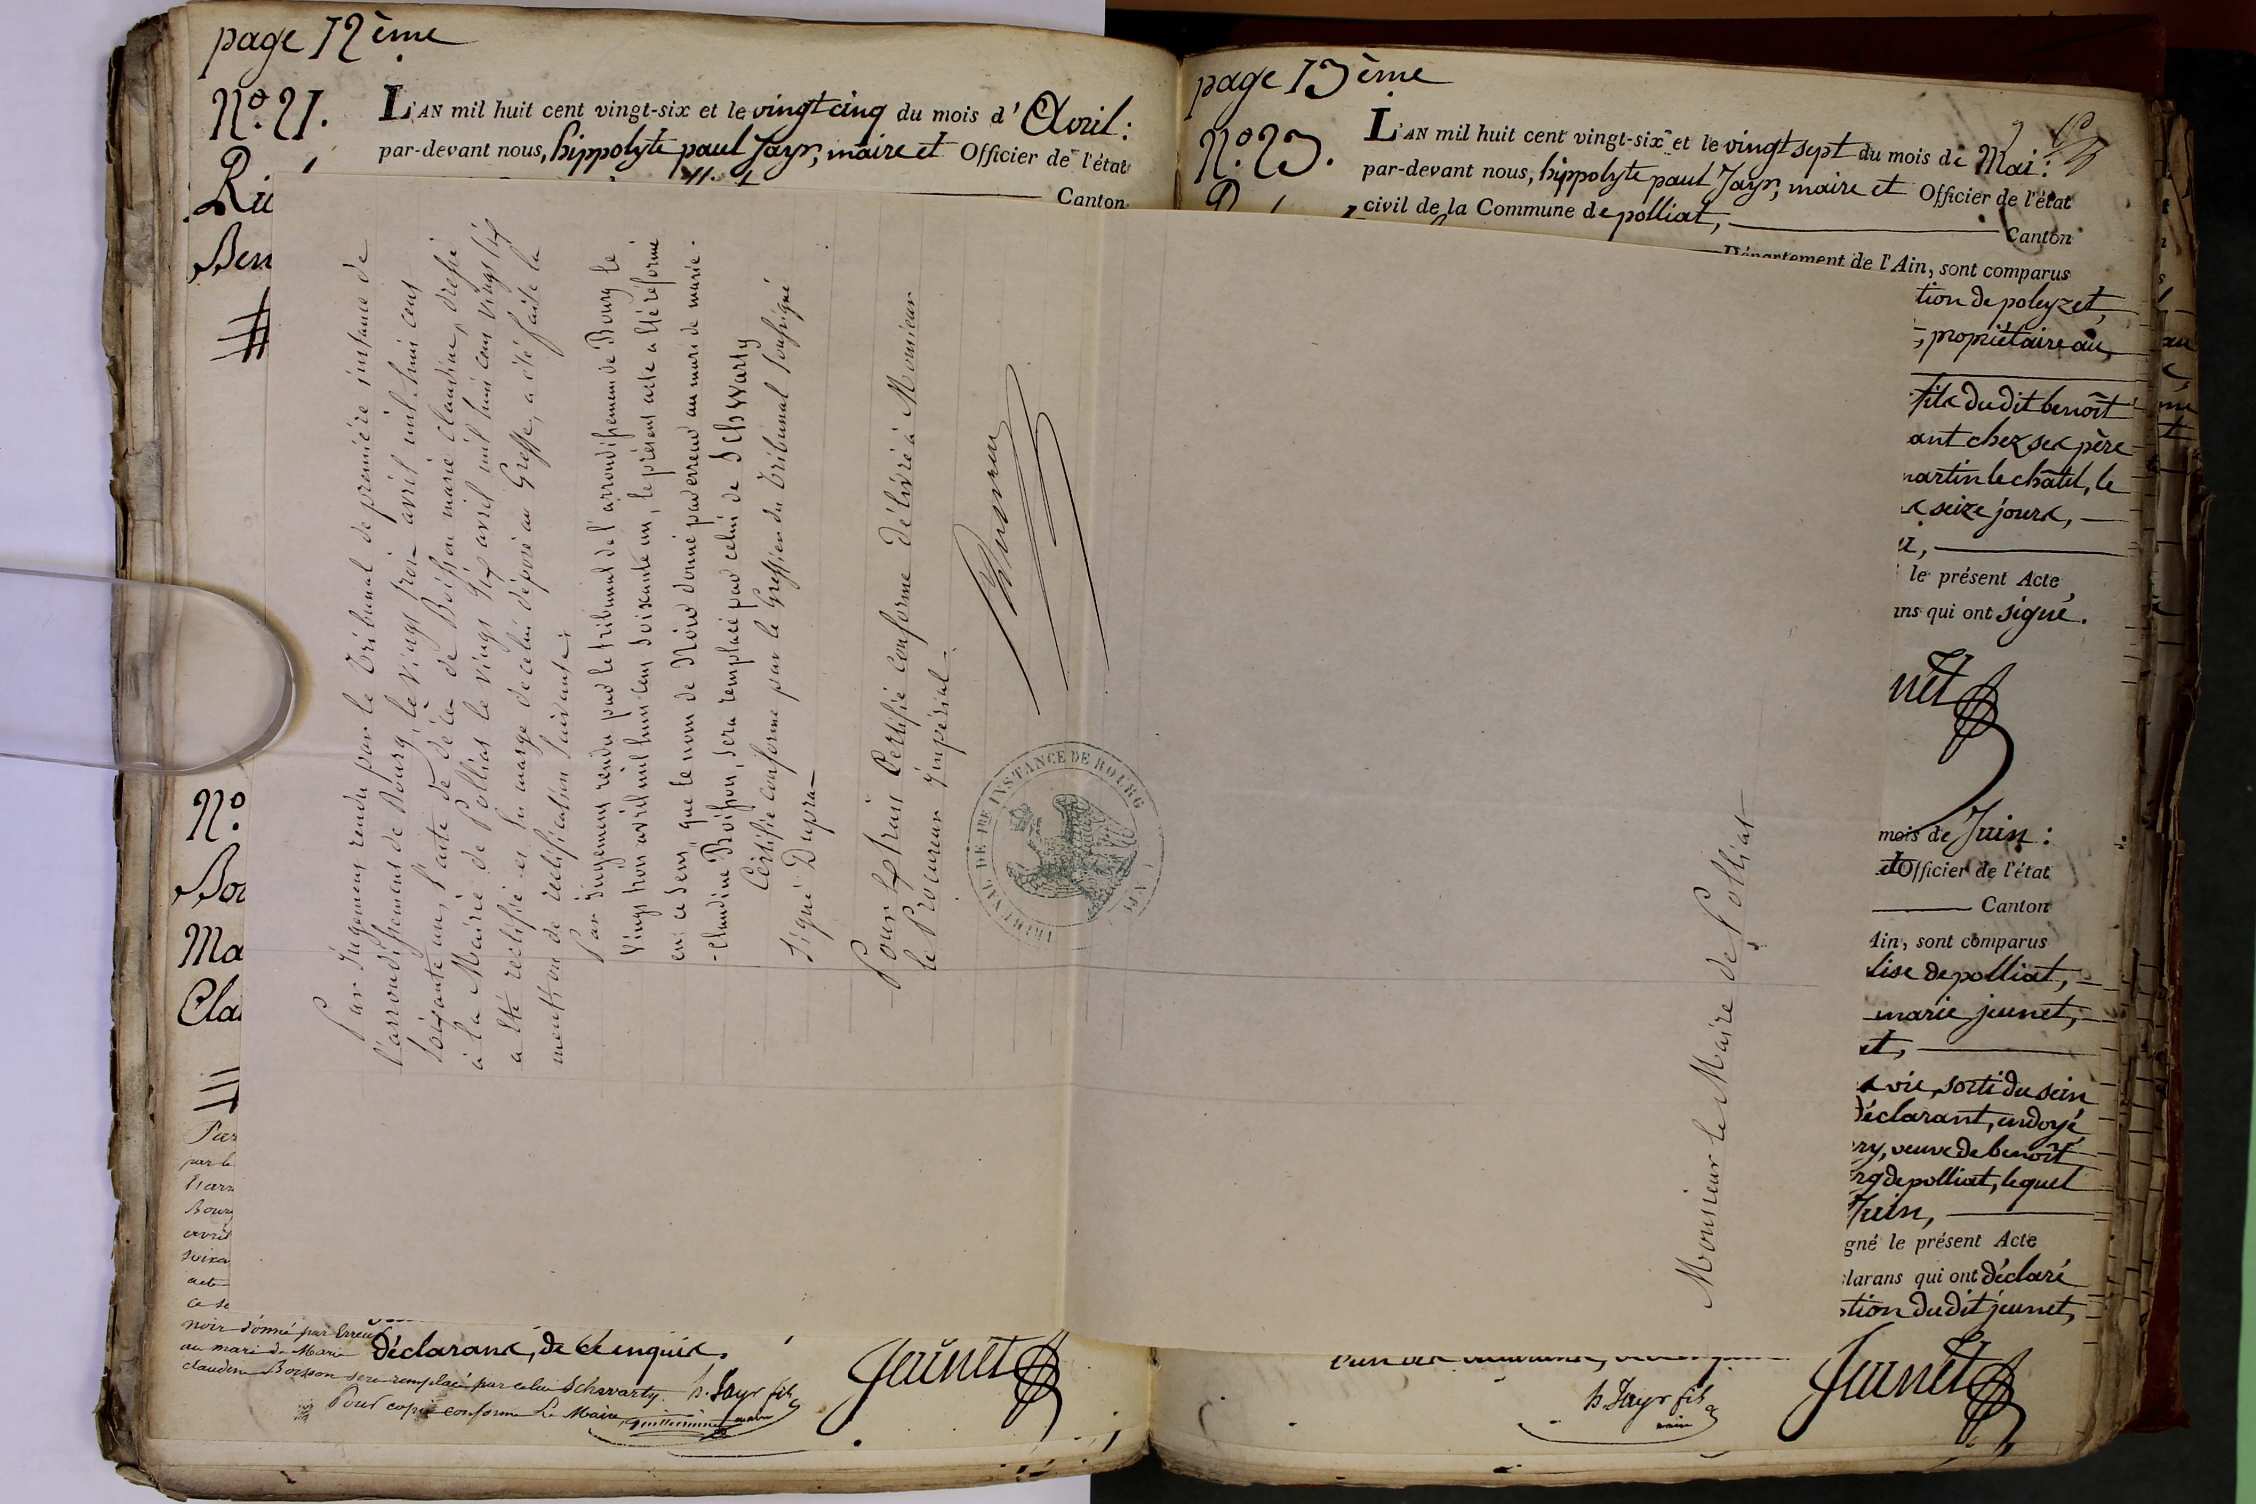 page 12ème
N.º 21.
L'AN mil huit cent vingt-six et le vingt cinq du mois d'Avril:
par-devant nous, hippolyte paul Jayr, maire et Officier de l'état
Canton
N.º
Par Jugement rendu par le Tribunal de première instance de
l'arrondissement de Bourg, le vingt trois avril mil huit cent
soixante un, l'acte de décès de Boisson marie claudine, dressé
à la Mairie de Polliat le vingt six avril mil huit cent vingt six
a été rectifié et en marge de celui déposé au Greffe, a été faite la
mention de rectification suivante:
Par Jugement rendu par le tribunal de l'arrondissement de Bourg le
vingt trois avril mil huit cent soixante un, le présent acte a été réformé
en ce sens, que le nom de Noir donné par erreur au mari de marie-
-claudine Boisson, sera remplacé par celui de Schwarty
Certifié conforme par le Greffier du Tribunal soussigné
Signé Dupra
Pour Extrait Certifié conforme délivré à Monsieur
le Procureur impérial.
TRIBUNAL DE 1RE INSTANCE DE BOURG
Monsieur le Maire de Polliat
noir donné par Erreur
au mari de Marie
claudine Boisson sera remplacé par celui Schwarty.
Pour copie conforme Le Maire
déclarans, de ce enquis.
h. Jayr fils
Jeunet
page 13ème
N.º 23.
L'AN mil huit cent vingt-six et le vingt sept du mois de Mai:
par-devant nous, hippolyte paul Jayr, maire et Officier de l'état
civil de la Commune de polliat,
Canton
Département de l'Ain, sont comparus
tion de poleyzet,
, propriétaire au
fils du dit benoît
ant chez ses père
martin le châtel, le
seize jours,
le présent Acte
ns qui ont signé.
mois de Juin:
et Officier de l'état
Canton
Ain, sont comparus
lise de polliat,
marie jeunet,
et,
vie, sorti du sein
déclarant, ondoyé
ry, veuve de benoît
rg de polliat, lequel
Juin,
gné le présent Acte
larans qui ont déclaré
tion du dit jeunet,
h. Jayr fils
maire
Jeunet